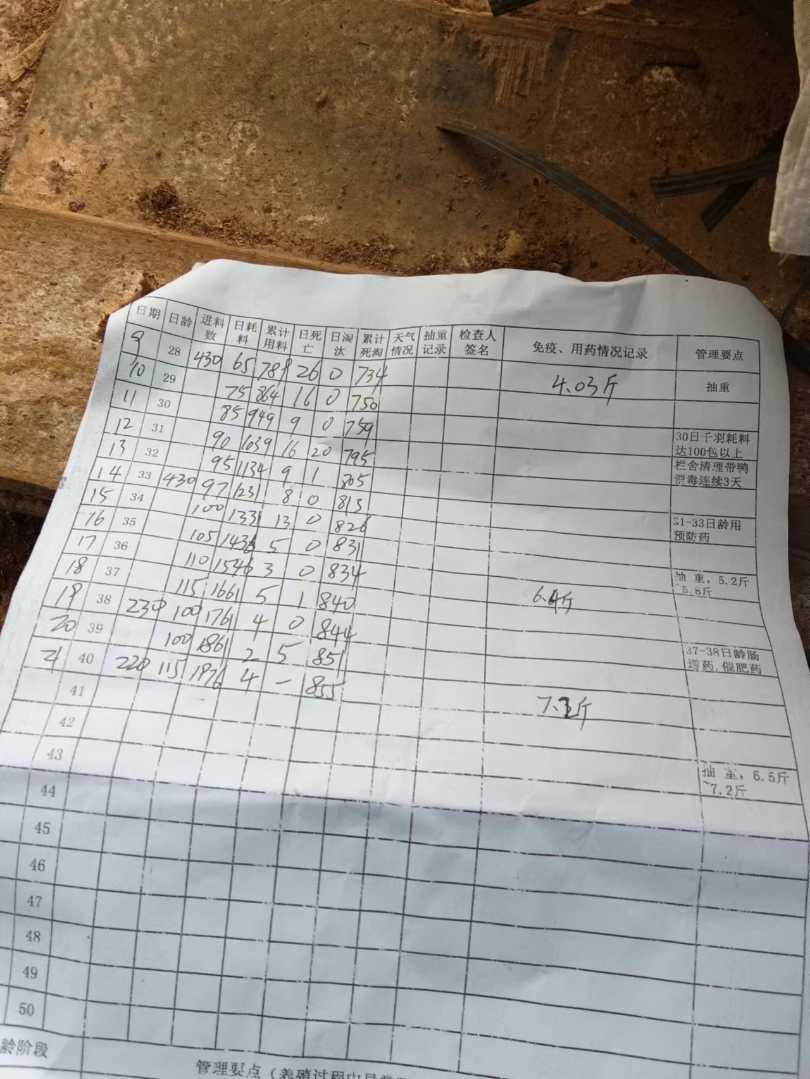 日期 日龄 进料数 日耗料 累计用料 日死亡 日淘汰 累计死淘 天气情况 抽重记录 检查人签名 免疫、用药情况记录 管理要点
9 28 430 65 789 26 0 734 4.03斤 抽重
10 29 75 864 16 0 750
11 30 85 949 9 0 759 30日千羽耗料达100包以上
12 31 90 1039 16 20 795 栏舍清理带鸭消毒连续3天
13 32 95 1134 9 1 805
14 33 430 97 1231 8 0 813 31-33日龄用预防药
15 34 100 1331 13 0 826
16 35 105 1436 5 0 831 抽重，5.2斤 5.8斤
17 36 110 1546 3 0 834
18 37 115 1661 5 1 840 37-38日龄肠药,催肥药
19 38 230 100 1761 4 0 844
20 39 100 1861 2 5 851
21 40 220 115 1976 4 - 855
41 抽重，6.5斤 7.2斤
42
43
44
45
46
47
48
49
50
龄阶段
管理要点